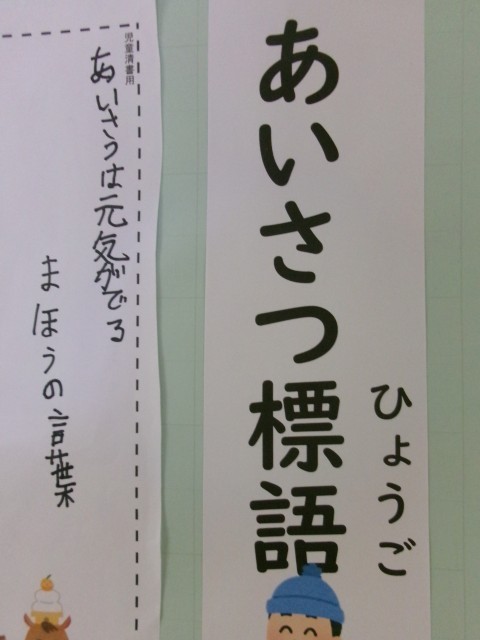 あいさつ標語
ひょうご
児童清書用
あいさつは元気がでる
まほうの言葉